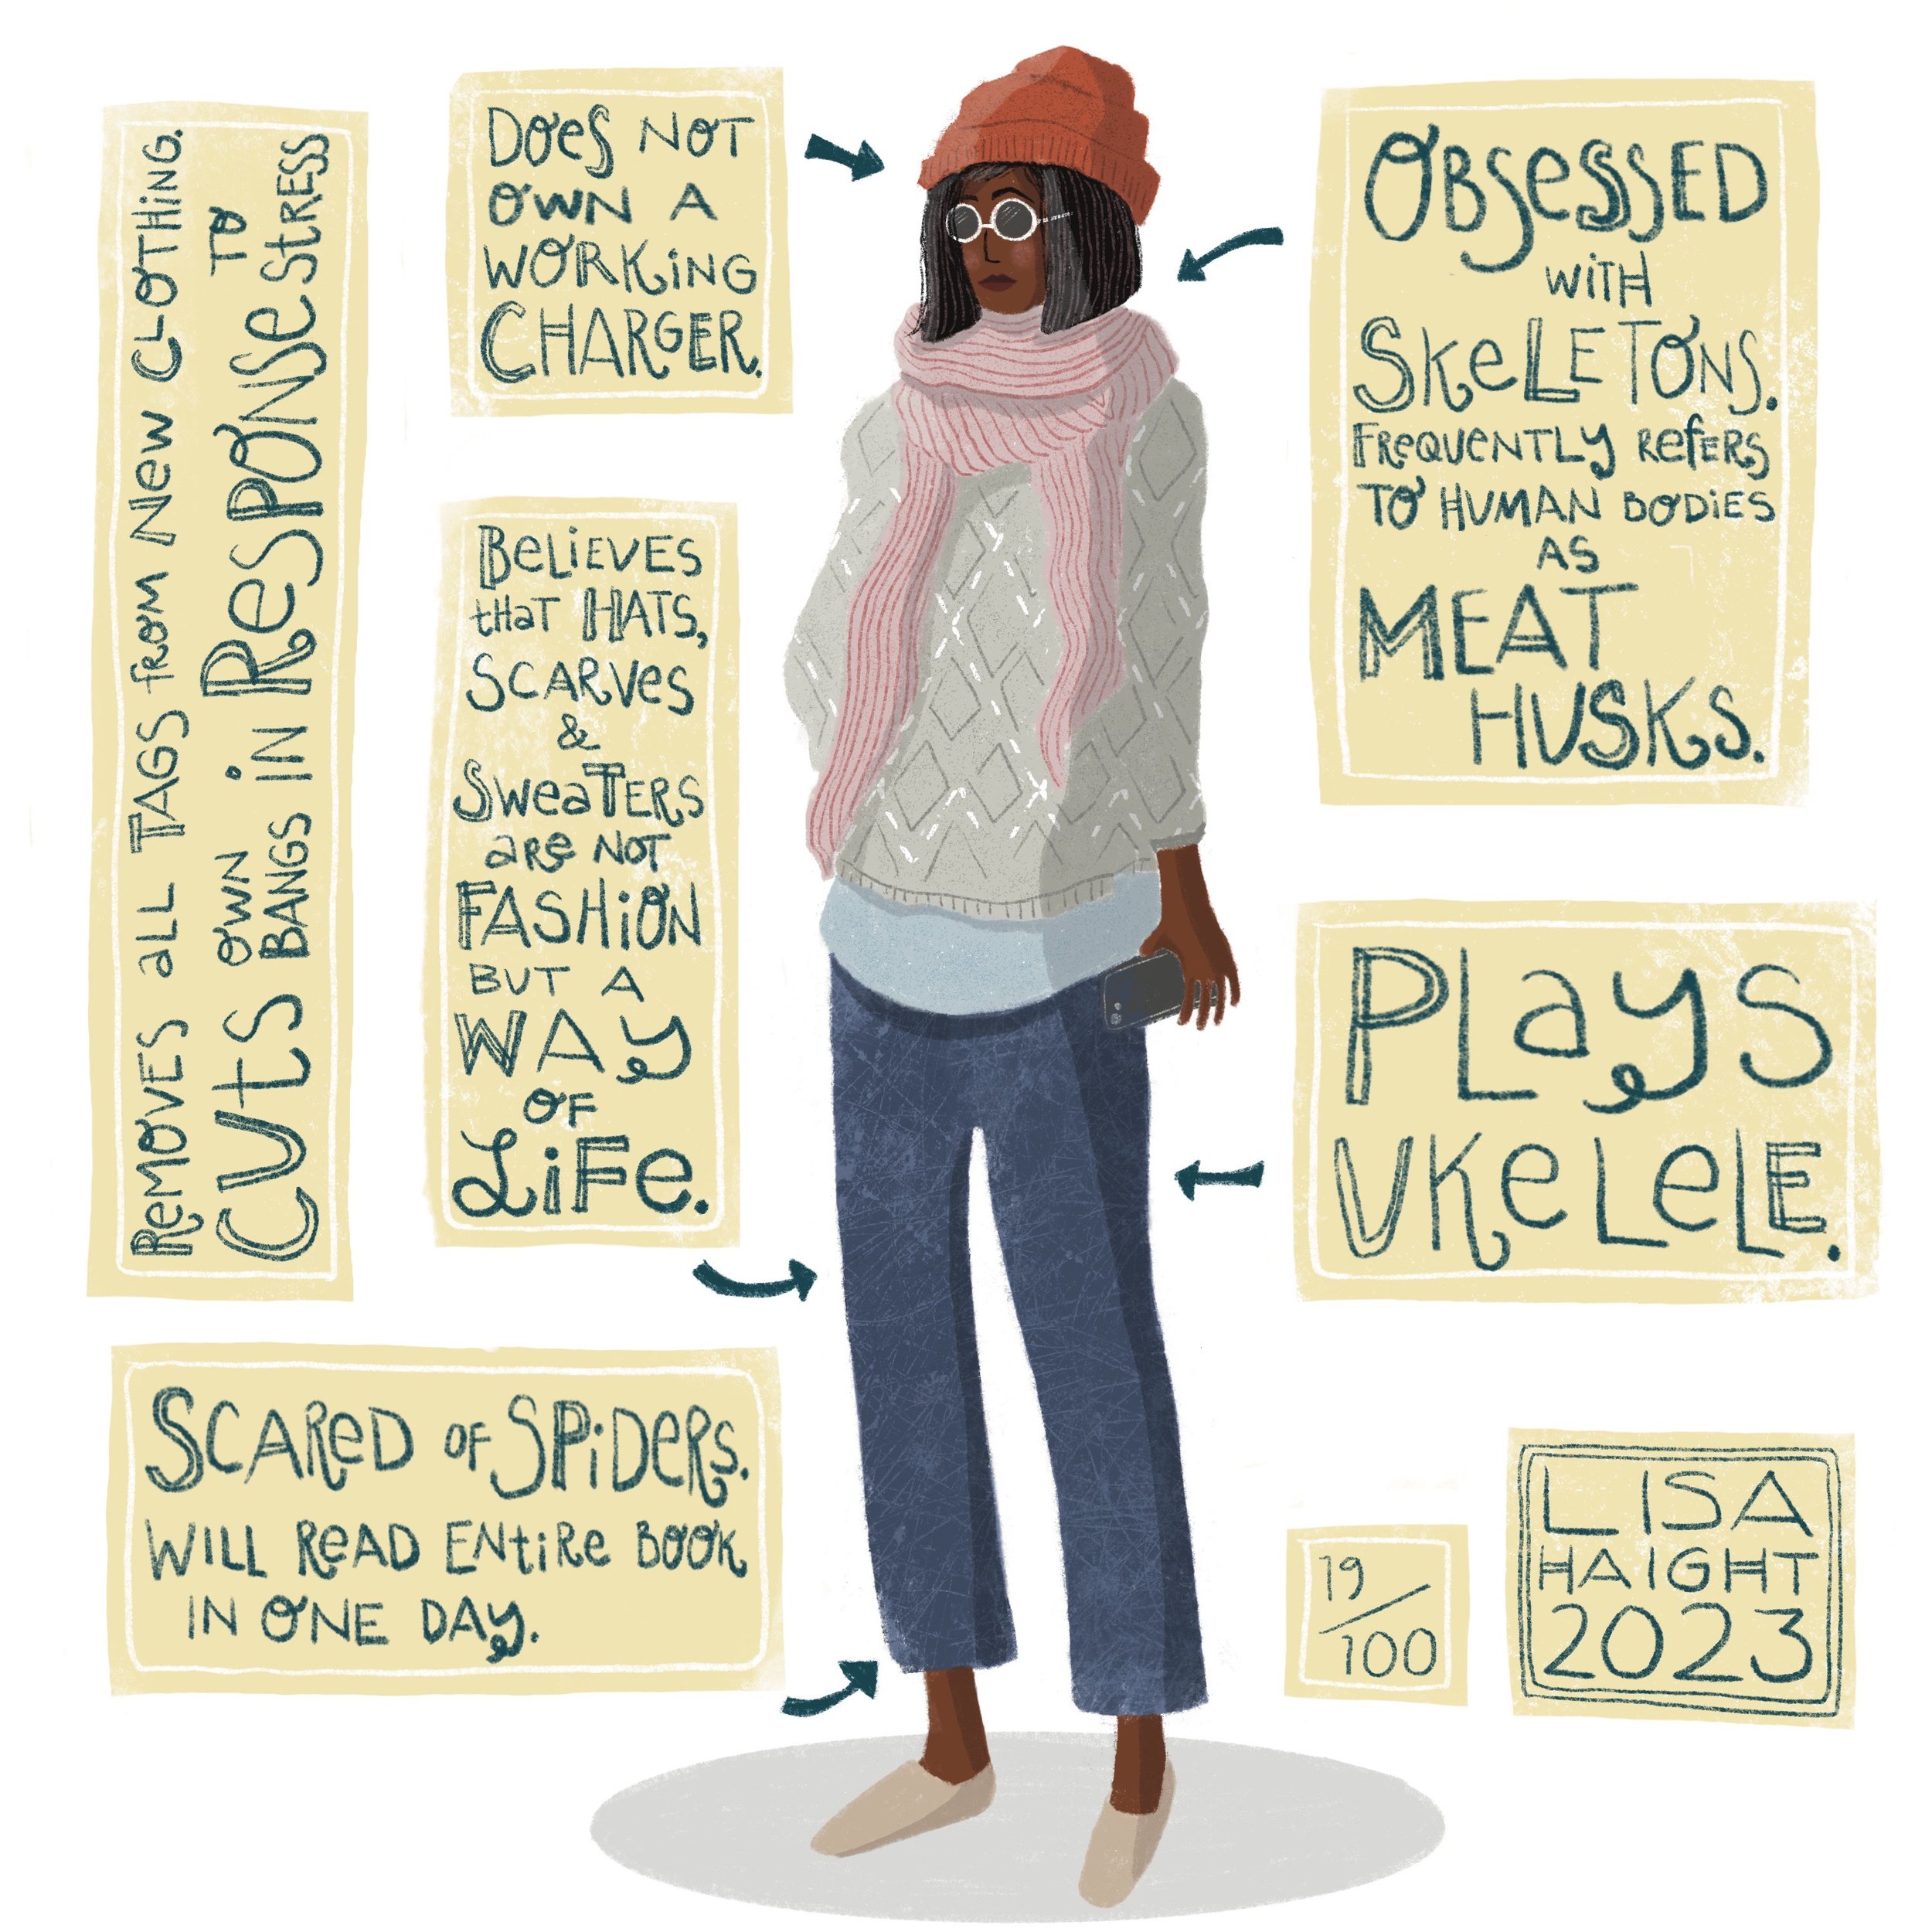 Removes all Tags from New Clothing.
Cuts own Bangs in Response to Stress
Does Not
Own a
Working
Charger.
Believes
that Hats,
Scarves
&
Sweaters
are not
Fashion
but a
Way
of
Life.
Scared of Spiders.
Will Read Entire Book
in One Day.
Obsessed
with
Skeletons.
Frequently Refers
to Human Bodies
as
Meat
Husks.
Plays
Ukelele.
19/100
Lisa
Haight
2023